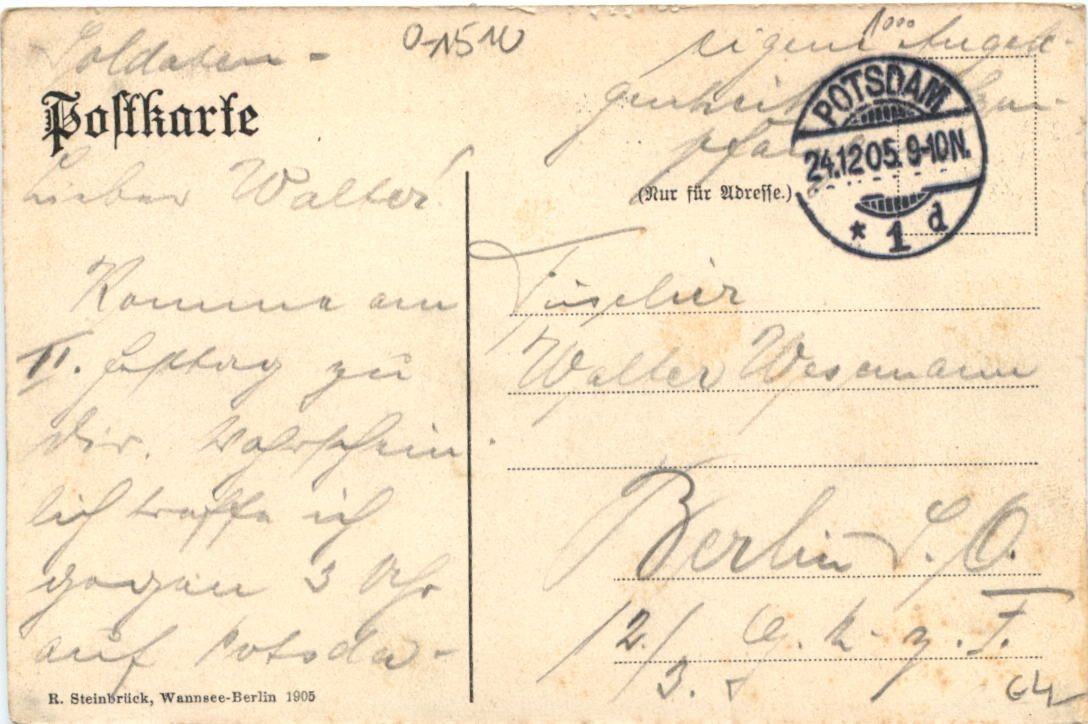 Soldaten-
O-1510
1000
eigene Angele-
genheit
Postkarte
POTSDAM
24.12.05. 9-10N.
* 1 d
(Nur für Adresse.)
Lieber Walter!
Komme am
II. Festtag zu
dir. Wahrschein-
lich treffe ich
gegen 3 Uhr
auf Potsda-
Füsilier
Walter Wesemann
Berlin S.O.
12./
3.
R. Steinbrück, Wannsee-Berlin 1905